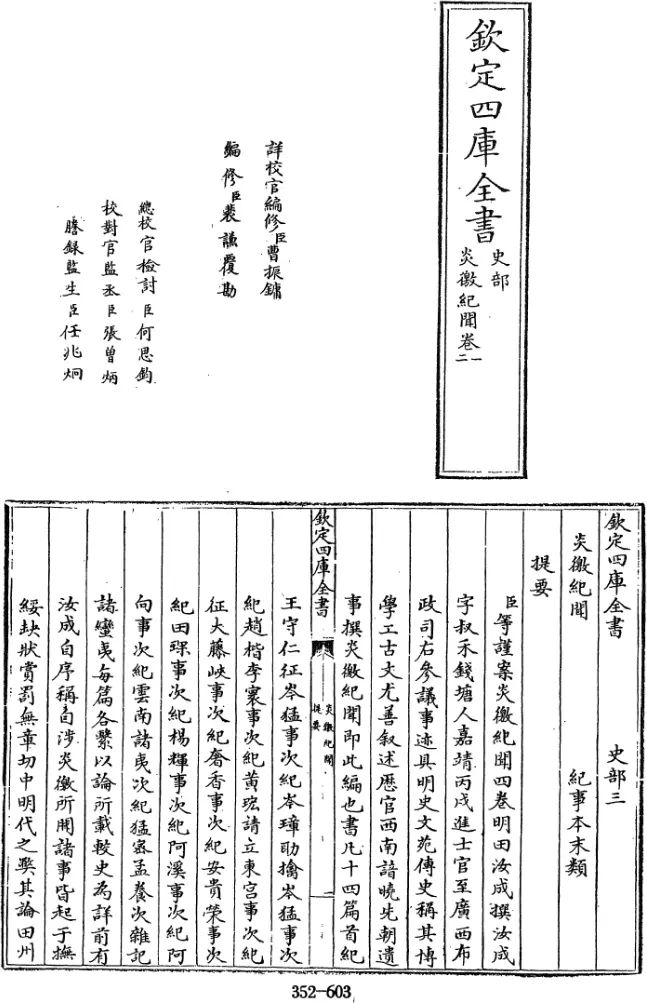 欽定四庫全書
史部
炎徼紀聞卷一
二
詳校官編修臣曹振鏞
編修臣裴謙覆勘
總校官檢討臣何思鈞
校對官監丞臣張曾炳
謄錄監生臣任兆炯
欽定四庫全書 史部三
炎徼紀聞 紀事本末類
提要
臣等謹案炎徼紀聞四卷明田汝成撰汝成
字叔禾錢塘人嘉靖丙戌進士官至廣西布
政司右參議事迹具明史文苑傳史稱其博
學工古文尤善叙述歷官西南諳曉先朝遺
事撰炎徼紀聞即此編也書凡十四篇首紀
欽定四庫全書 炎徼紀聞 提要 一
王守仁征岑猛事次紀岑璋助擒岑猛事次
紀趙楷李寰事次紀黃珫請立東宫事次紀
征大藤峽事次紀奢香事次紀安貴榮事次
紀田琛事次紀楊輝事次紀阿溪事次紀阿
向事次紀雲南諸夷次紀猛密孟養次雜記
諸蠻夷每篇各繫以論所載較史為詳前有
汝成自序稱自涉炎徼所聞諸事皆起于撫
綏缺狀賞罰無章切中明代之弊其論田州
352-603